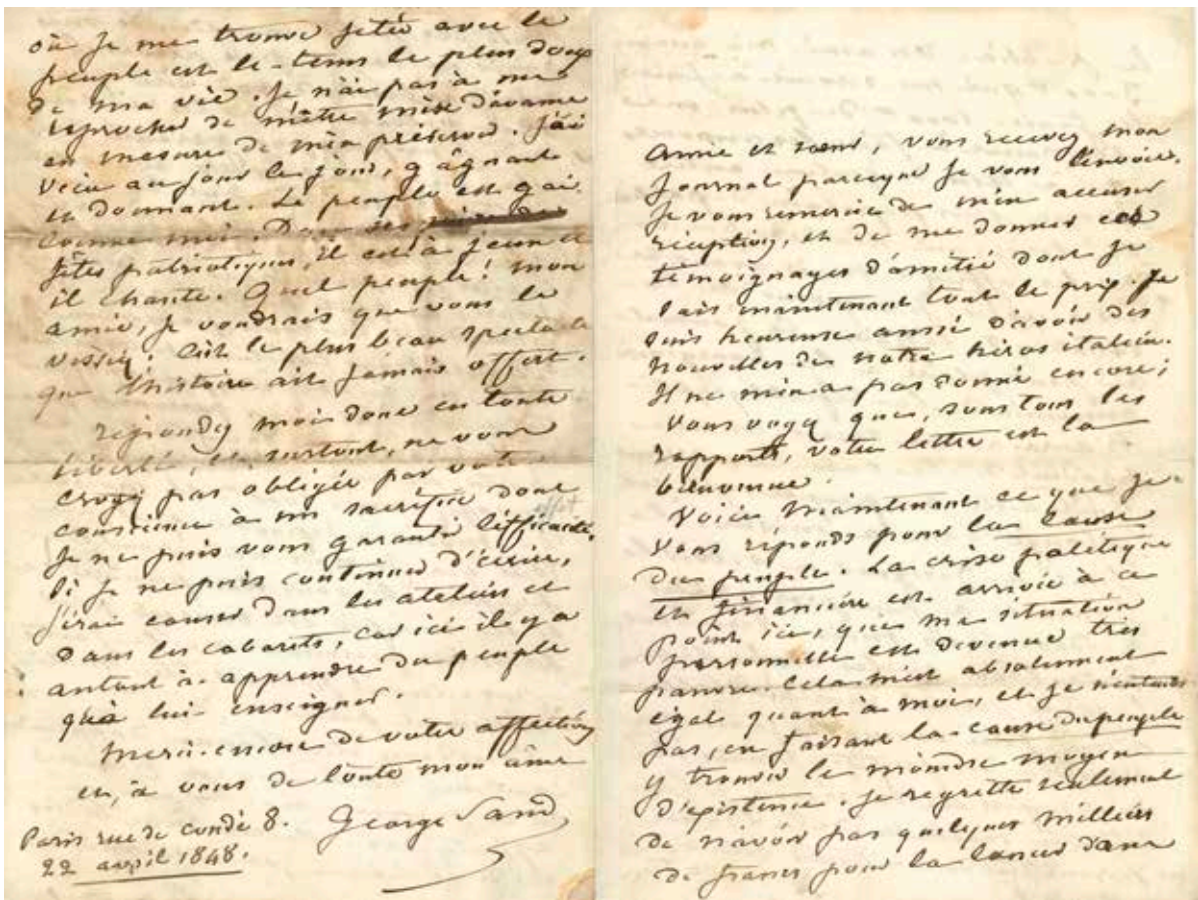 où je me trouve jetée avec le
peuple est le tems le plus doux
de ma vie. Je n'ai pas à me
reprocher de m'être mise d'avance
en mesure de m'en préserver. J'ai
vécu au jour le jour, gagnant
et donnant. Le peuple est gai
comme moi. Dans ses
fêtes patriotiques, il est à jeun et
il chante. Quel peuple! mon
amie, je voudrais que vous le
vissiez! C'est le plus beau spectacle
que l'histoire ait jamais offert.
répondez moi donc en toute
liberté, et surtout, ne vous
croyez pas obligée par votre
conscience à un sacrifice dont
je ne puis vous garantir l'efficacité.
Si je ne puis continuer d'écrire,
j'irai causer dans les ateliers et
dans les cabarets, car ici il y a
autant à apprendre du peuple
qu'à lui enseigner.
Merci encore de votre affection
et, à vous de toute mon âme
George Sand
Paris rue de Condé 8.
22 avril 1848.
Amie et sœur, vous recevez mon
journal parceque je vous l'envoie.
Je vous remercie de m'en accuser
réception, et de me donner ces
témoignages d'amitié dont je
sais maintenant tout le prix. Je
suis heureuse aussi d'avoir des
nouvelles de notre héros italien.
Il ne m'en a pas donné encore;
Vous voyez que, sous tous les
rapports, votre lettre est la
bienvenue.
Voici maintenant ce que je
vous réponds pour la cause
du peuple. La crise politique
et financière est arrivée à ce
point ici, que ma situation
personnelle est devenue très
pauvre. Cela m'est absolument
égal quant à moi, et je n'entends
pas, en faisant la cause du peuple
y trouver le moindre moyen
d'existence. Je regrette seulement
de n'avoir pas quelques milliers
de francs pour la lancer dans